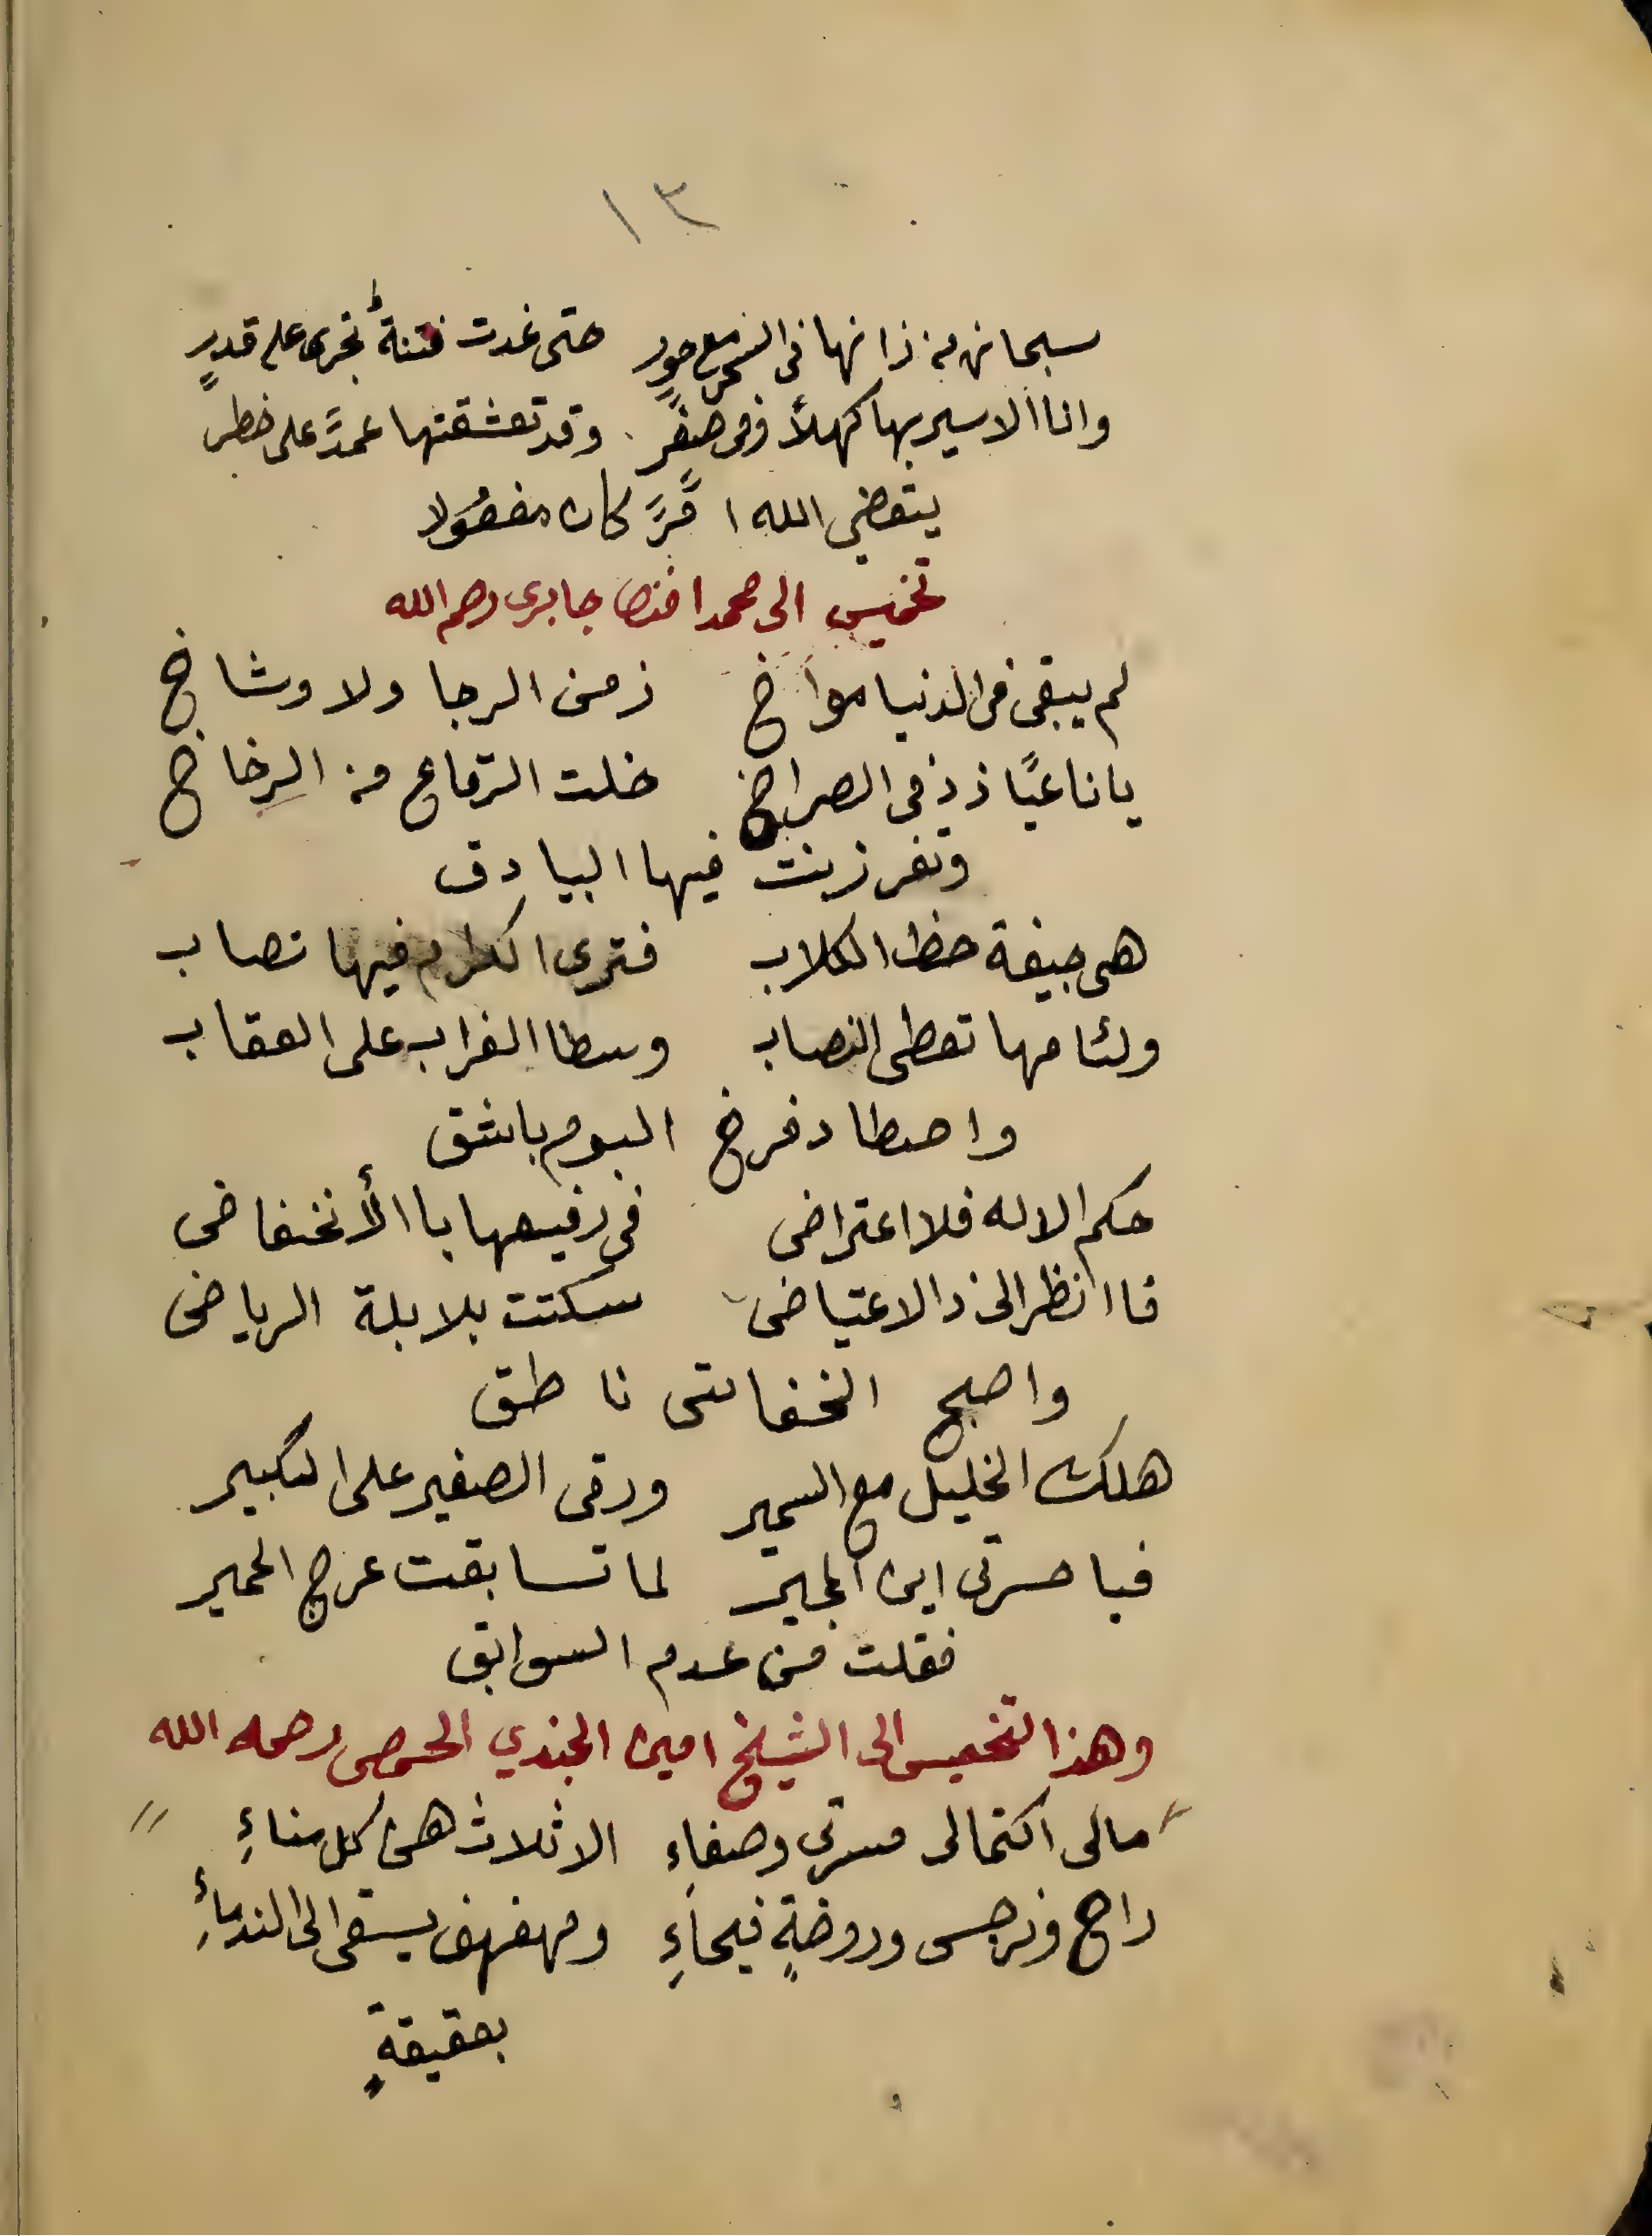 ١٣
سبحان من زانها في السحر مع حور حتى غدت فتنةً تجرى على قدرٍ
وانا الاسير بها كهلاً وفى صغرٍ وقد تعشقتها عمدًا على خطر
يتقضي الله امرًا كان مفعُولا
تخميس الى محمد افندى جابرى رحم الله
لم يبقى فى الدنيا مواخ زمن الرجا ولا وشاخ
يا ناعيًا زد فى الصراخ خلت الرقاع من الرِخاخ
وتفرزنت فيها البيادق
هى جيفة حظ الكلاب فترى الكرام فيها تصاب
ولئامها تعطى النصاب وسطا الغراب على العقاب
واصطاد فرخ البوم باشق
حكم الاله فلا اعتراضى فى رفيعها باالأنخفاضى
فاانظر الى ذالاعتياضى سكتت بلابلة الرياضى
واصبح الخفاتى ناطق
هلك الخليل مع السمير ورقى الصغير على الكبير
فيا حسرتى اين المجير لما تسابقت عرج الحمير
فقلت من عدم السوابق
وهذا التخميس الى الشيخ امين الجندي الحمصى رحمه الله
مالى اكتمالى مسرتى وصفاءِ الا ثلاث هى كل مناءِ
راح ونرجس وروضةٍ فيحاءِ ومهفهف يسقى الى الندماءِ
بعقيقةٍ